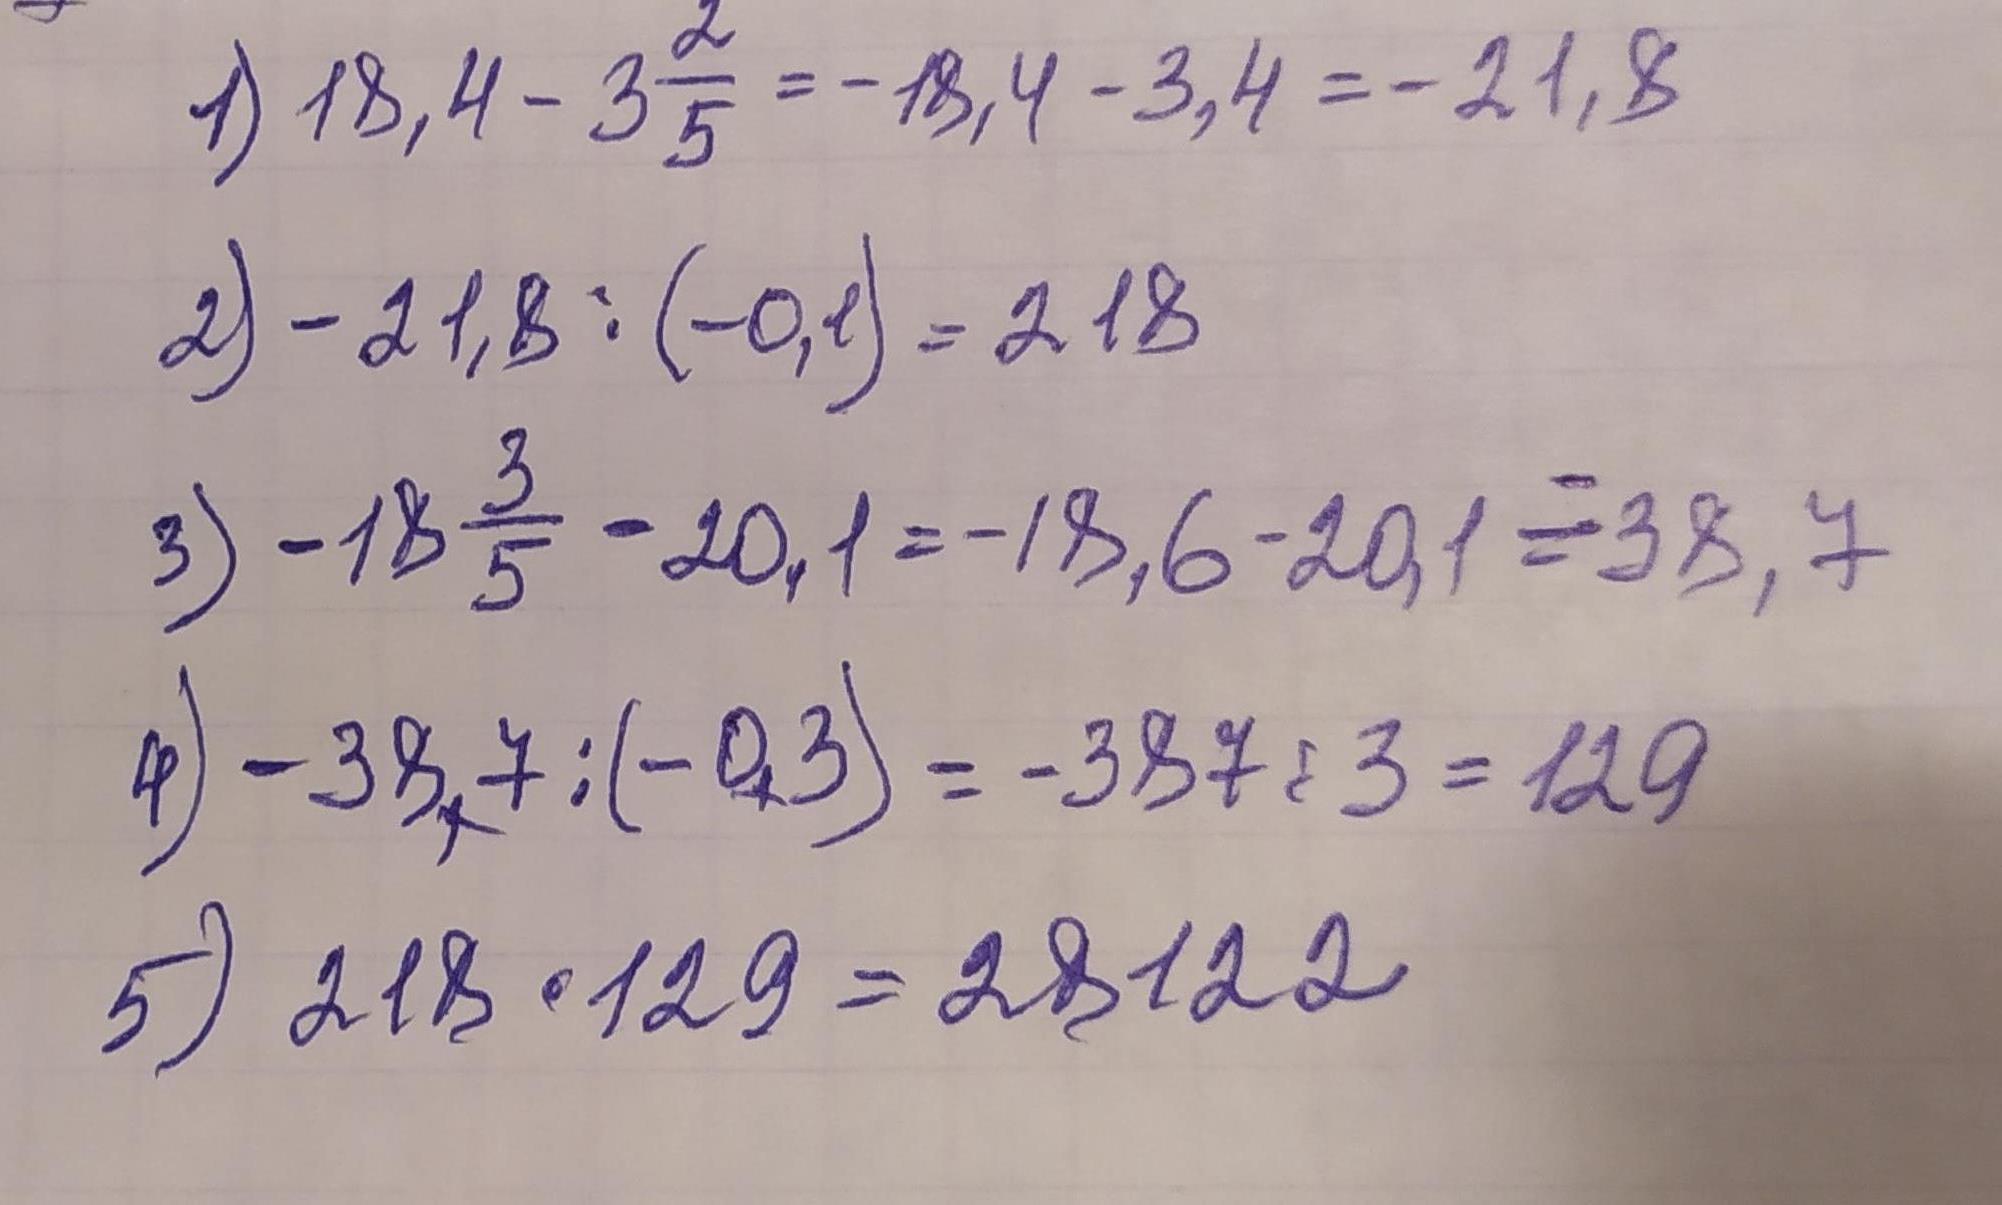 1) 18,4 - 3 2/5 = -18,4 - 3,4 = -21,8
2) -21,8 : (-0,1) = 218
3) -18 3/5 - 20,1 = -18,6 - 20,1 = -38,7
4) -38,7 : (-0,3) = -387 : 3 = 129
5) 218 · 129 = 28122